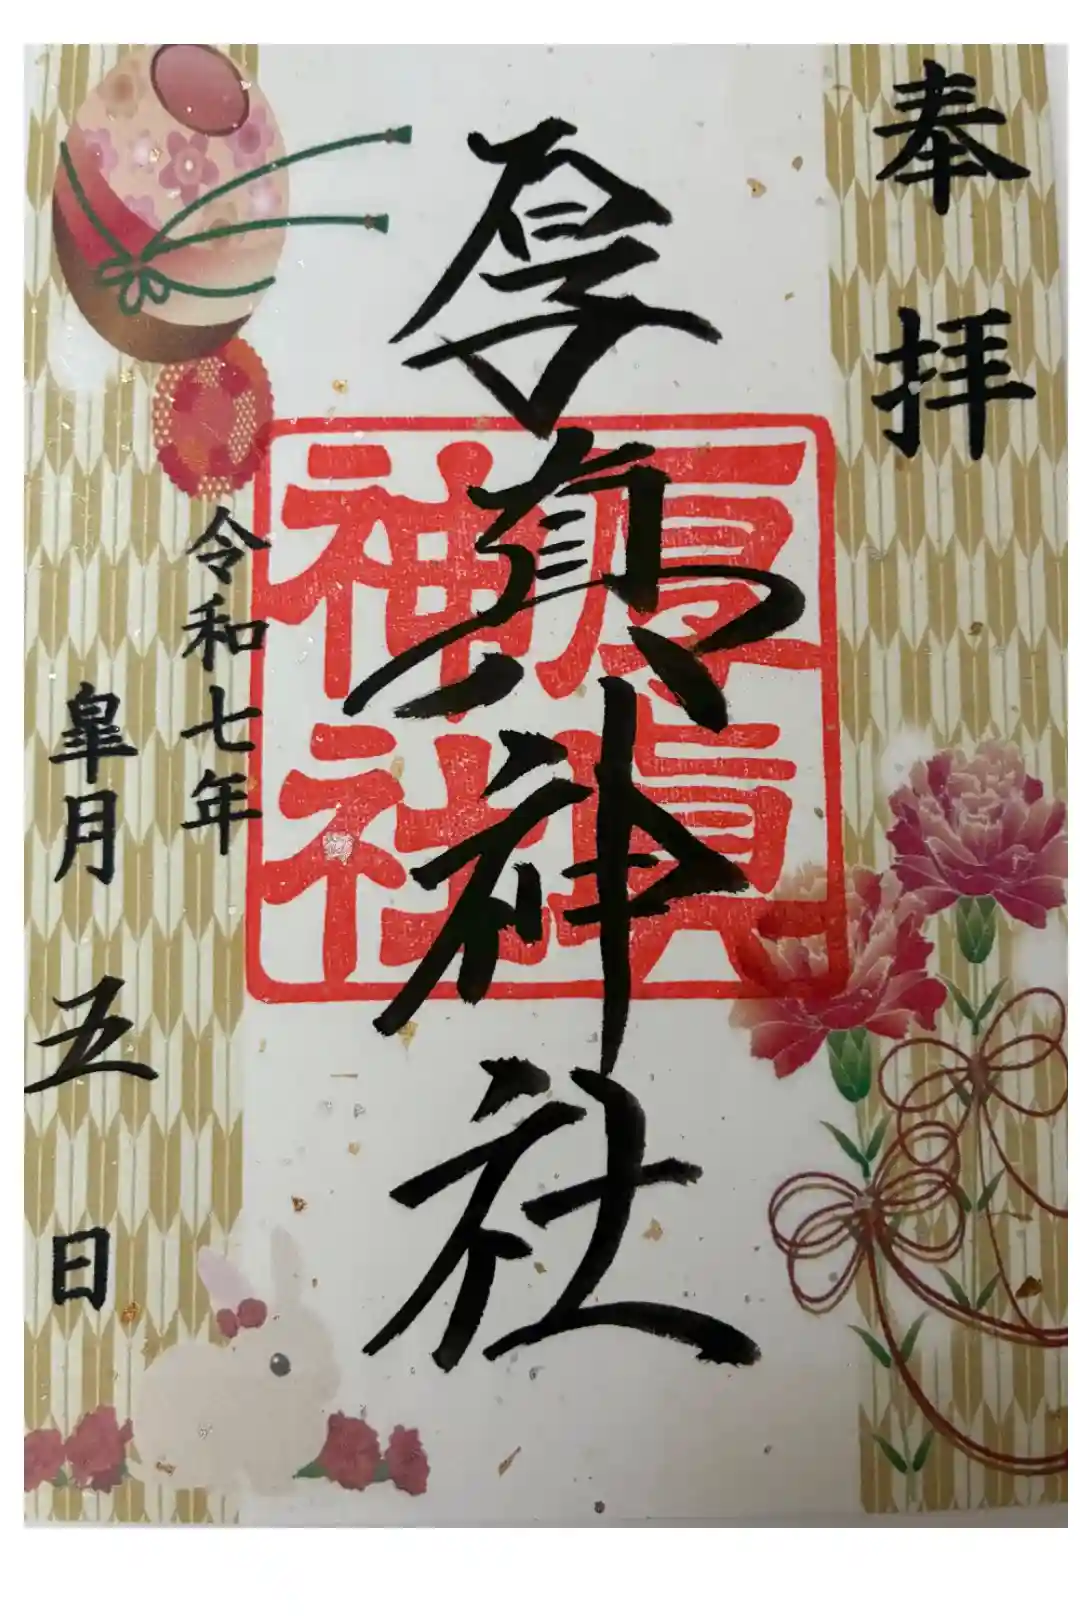 奉拝
厚真神社
厚真神社
令和七年
皐月五日